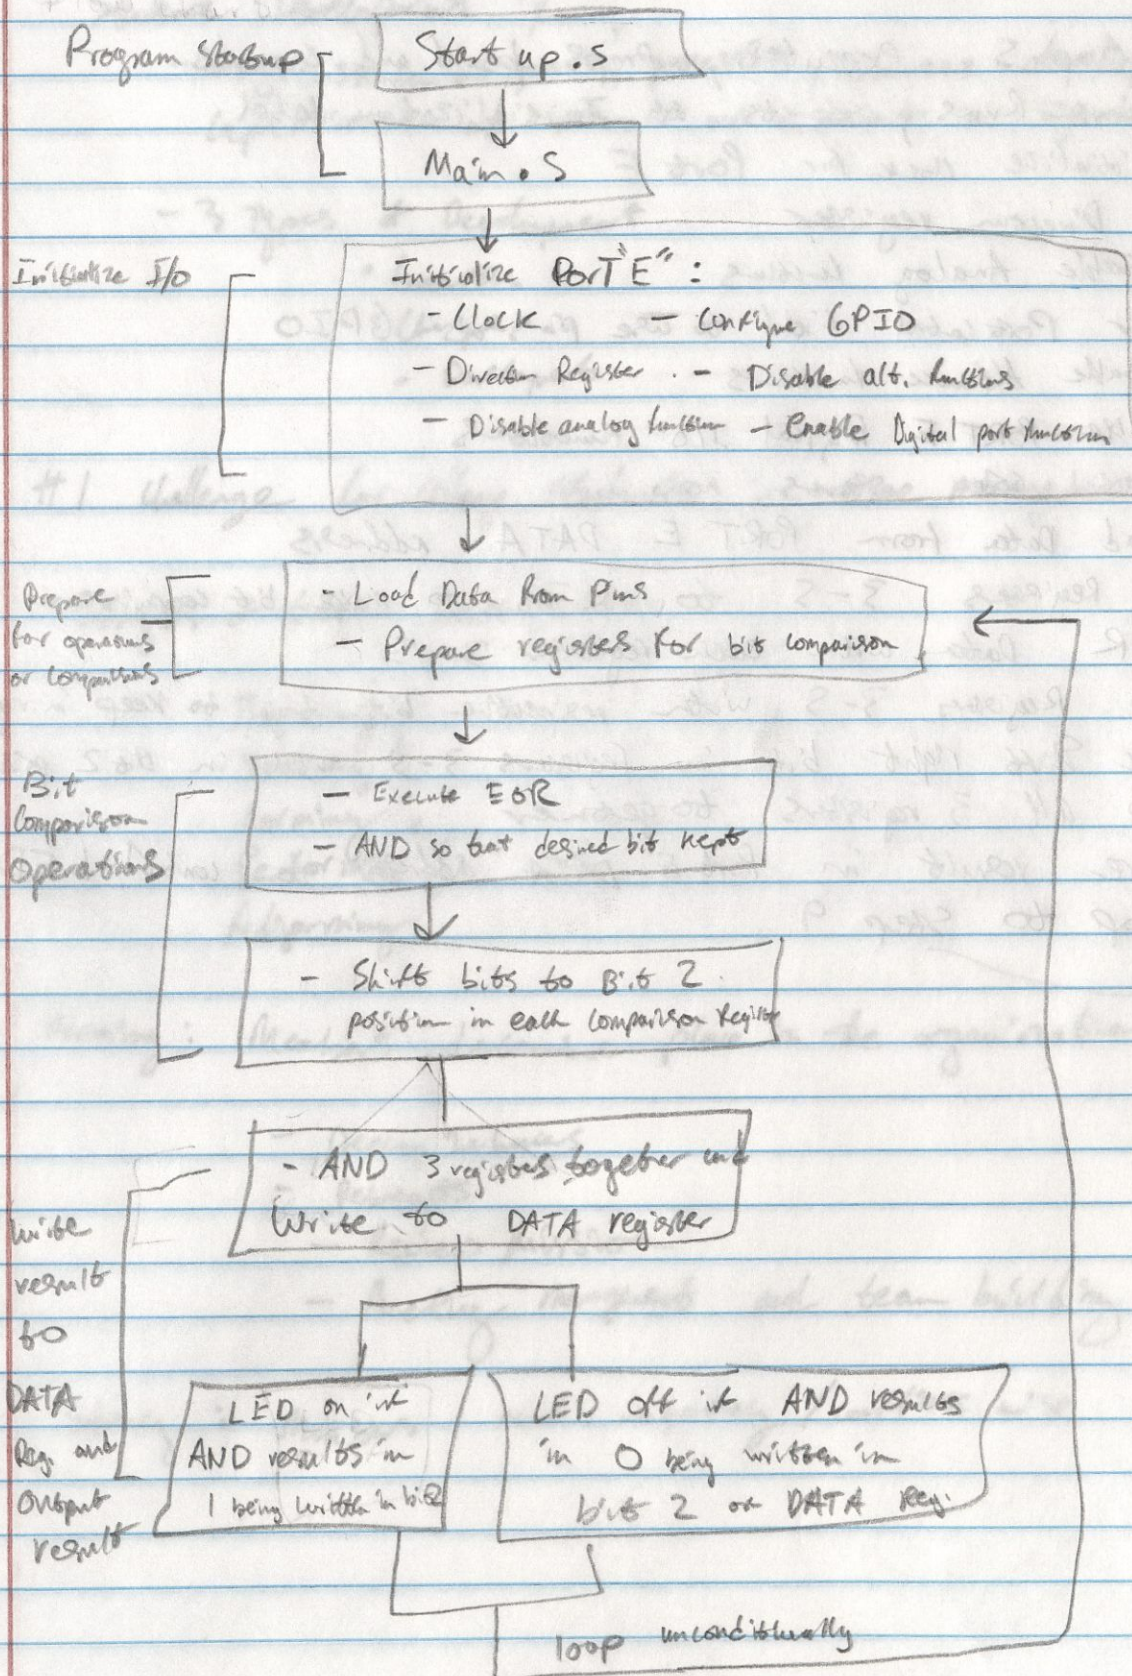 Program startup
Startup.s
Main.S
Initialize I/O
Initialize PorT "E" :
- Clock - Configure GPIO
- Direction Register - Disable alt. functions
- Disable analog function - Enable Digital port function
Prepare
for operations
or comparisons
- Load Data from Pins
- Prepare registers for bit comparison
Bit
Comparison
Operations
- Execute EOR
- AND so that desired bit kept
- Shift bits to Bit 2
position in each comparison register
Write
result
to
DATA
Reg. and
Output
result
- AND 3 registers together and
Write to DATA register
LED on if
AND results in
1 being written in bit 2
LED off if AND results
in 0 being written in
bit 2 of DATA Reg.
loop unconditionally